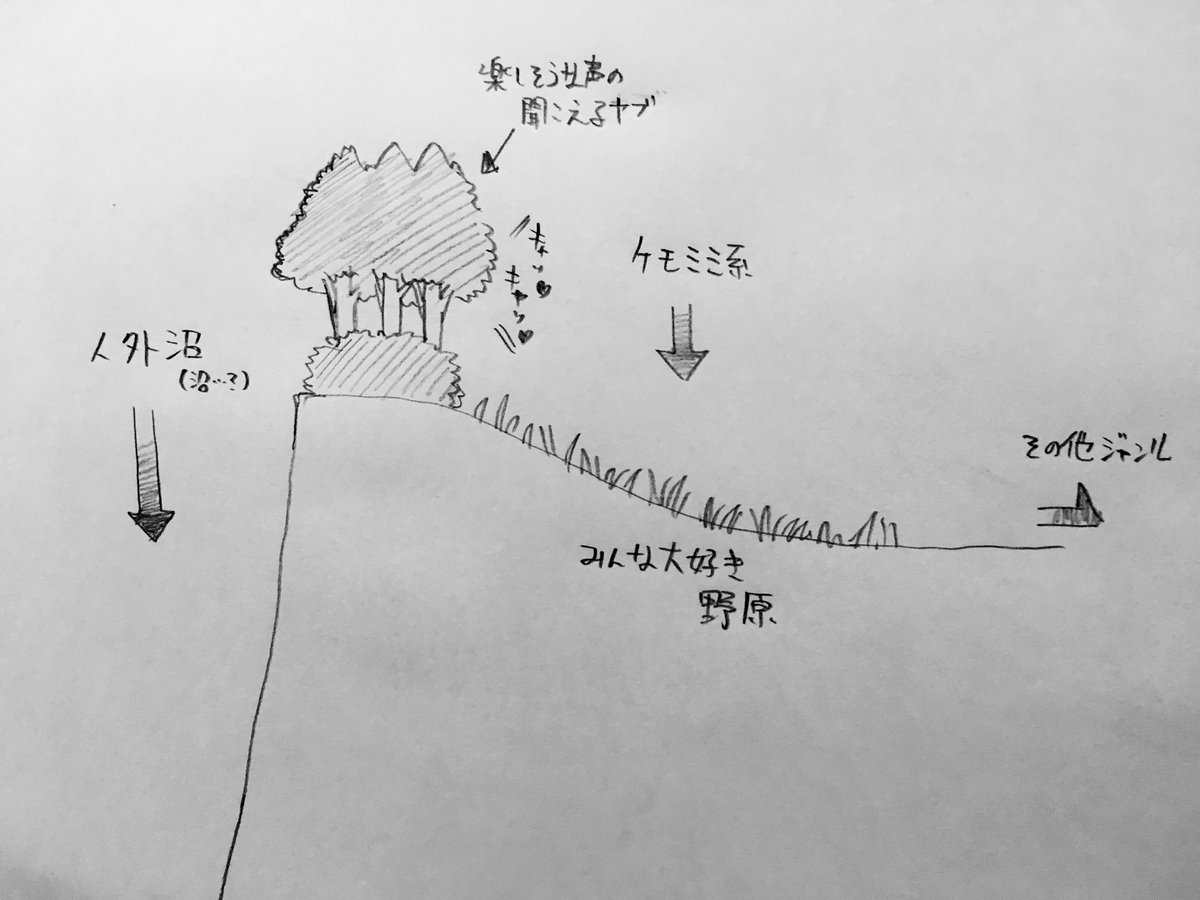 楽しそうな声の
聞こえるヤブ
キャッ♥
キャッ♥
ケモミミ系
人外沼
(沼…?)
その他ジャンル
みんな大好き
野原